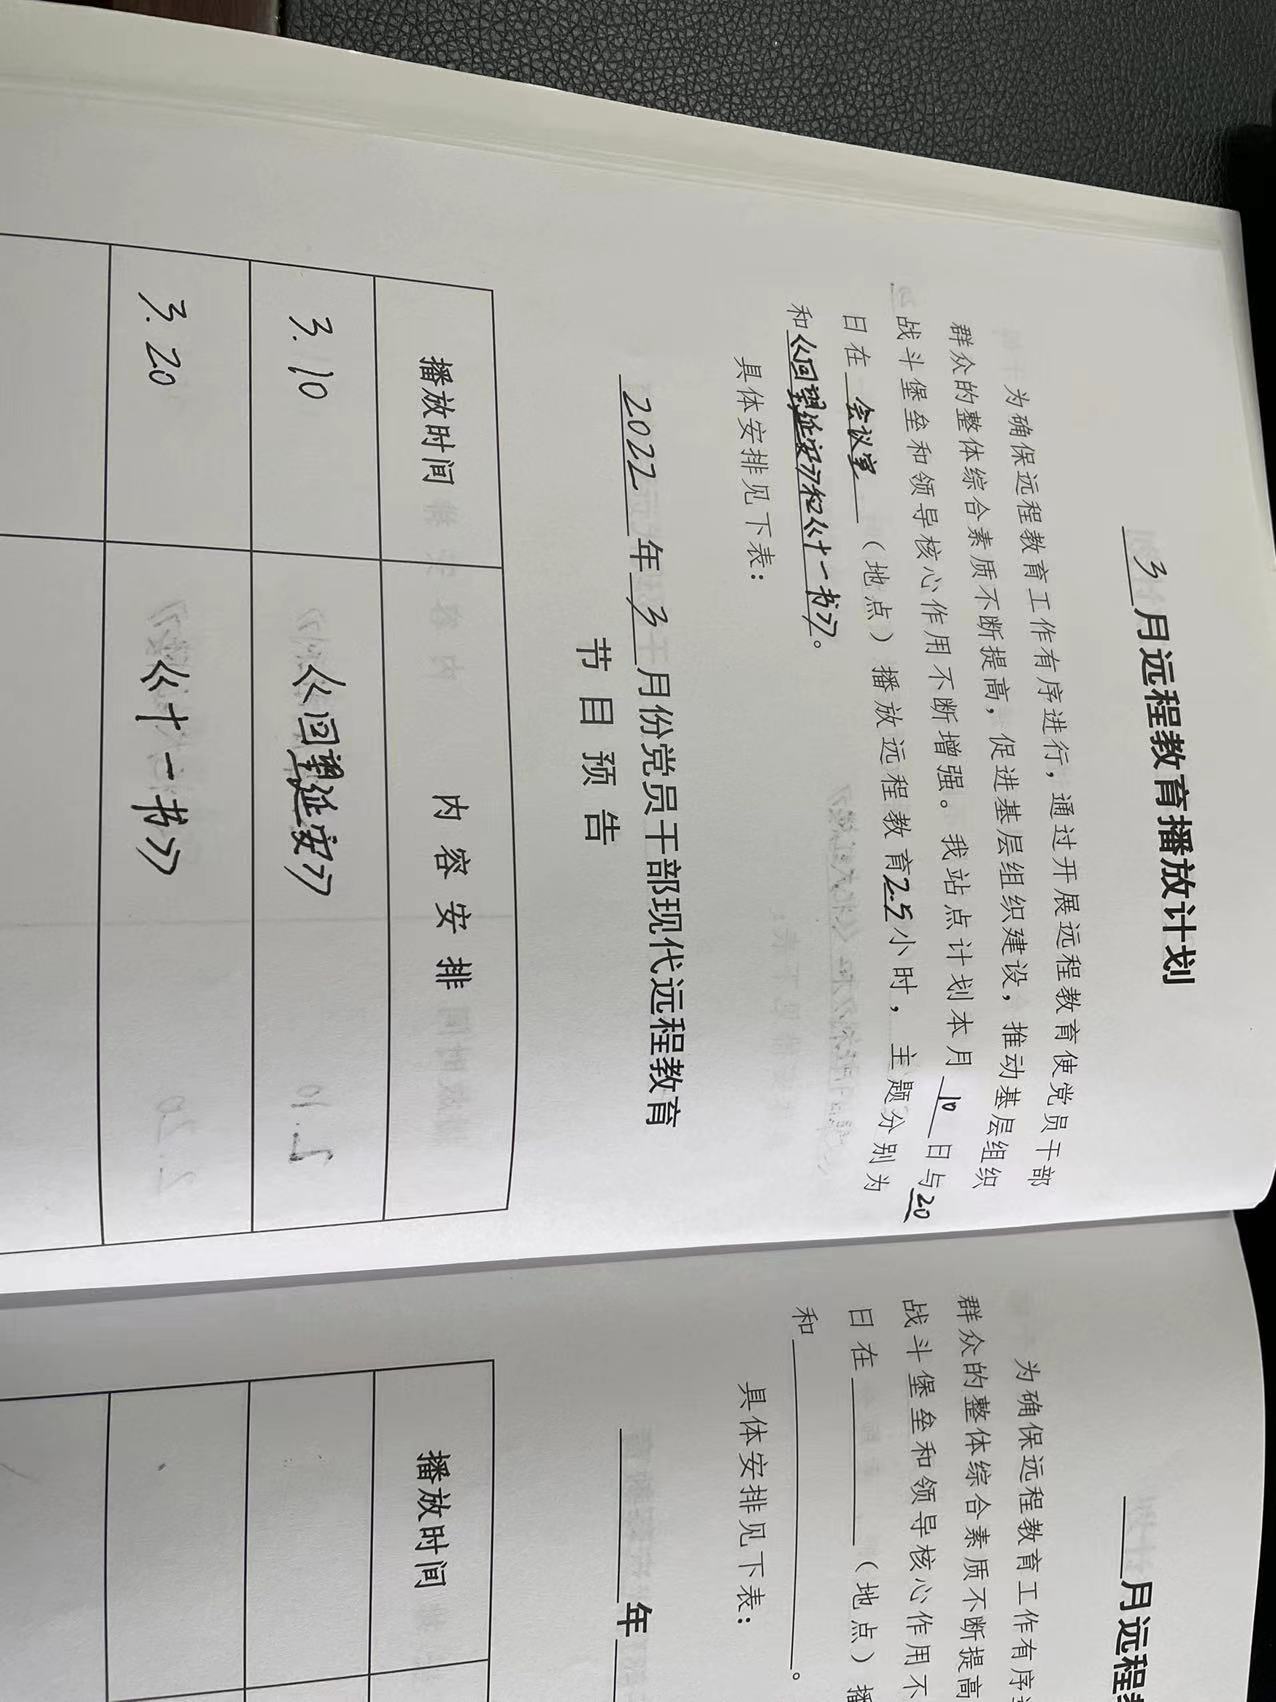 3月远程教育播放计划
为确保远程教育工作有序进行，通过开展远程教育使党员干部
群众的整体综合素质不断提高，促进基层组织建设，推动基层组织
战斗堡垒和领导核心作用不断增强。我站点计划本月10日与20
日在会议室（地点）播放远程教育2.5小时，主题分别为
和《回望延安》和《十一书》。
具体安排见下表：
2022年3月份党员干部现代远程教育
节目预告
播放时间 内容安排
3.10 《回望延安》
3.20 《十一书》
月远程
为确保远程教育工作有序
群众的整体综合素质不断提高
战斗堡垒和领导核心作用不
日在（地点）播
和。
具体安排见下表：
年
播放时间